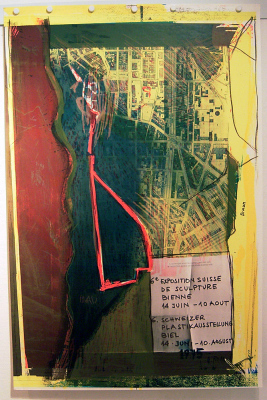 6e EXPOSITION SUISSE
DE SCULPTURE
BIENNE
14 JUIN - 10 AOUT
6. SCHWEIZER
PLASTIKAUSSTELLUNG
BIEL
14. JUNI - 10. AUGUST
1975